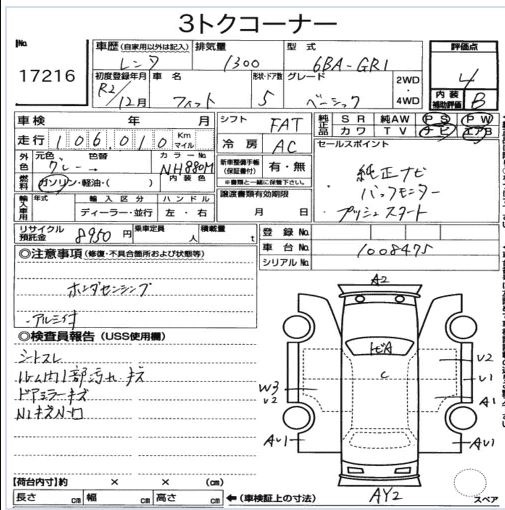 3トクコーナー
No.
17216
車歴 (自家用以外は記入)
レンタ
排気量
1300
型式
6BA-GR1
評価点
4
初度登録年月
R2/12月
車名
フィット
形状・ドア数
5
グレード
ベーシック
2WD
・
4WD
内装
補助評価
B
車検 年 月
シフト
FAT
純正品 SR 純AW PS PW
カワ TV ナビ エアB
走行 106,010 Km マイル
冷房
AC
セールスポイント
純正ナビ
バックモニター
プッシュスタート
外色 元色 色替
グレー
カラーNo.
NH880M
新車整備手帳
(保証書付)
有・無
※書類と一緒に保管下さい。
燃料 ガソリン・軽油・( )
内装色
譲渡書類有効期限
月 日
輸入車用 年式 輸入区分 ハンドル
ディーラー・並行 左・右
リサイクル預託金 8950円
乗定員 人
積載量 t
登録No.
車台No. 1008475
シリアルNo.
◎注意事項 (修復・不具合箇所および状態等)
ホンダセンシング
・アルミ付
◎検査員報告 (USS使用欄)
シートスレ
ルーム内1部汚れ・キズ
ドアミラーキズ
A2
C
U2
U1
A1
W3
U2
AU1
AU1
AY2
スペア
【荷台内寸】約 × × (cm)
長さ cm 幅 cm 高さ cm
←(車検証上の寸法)